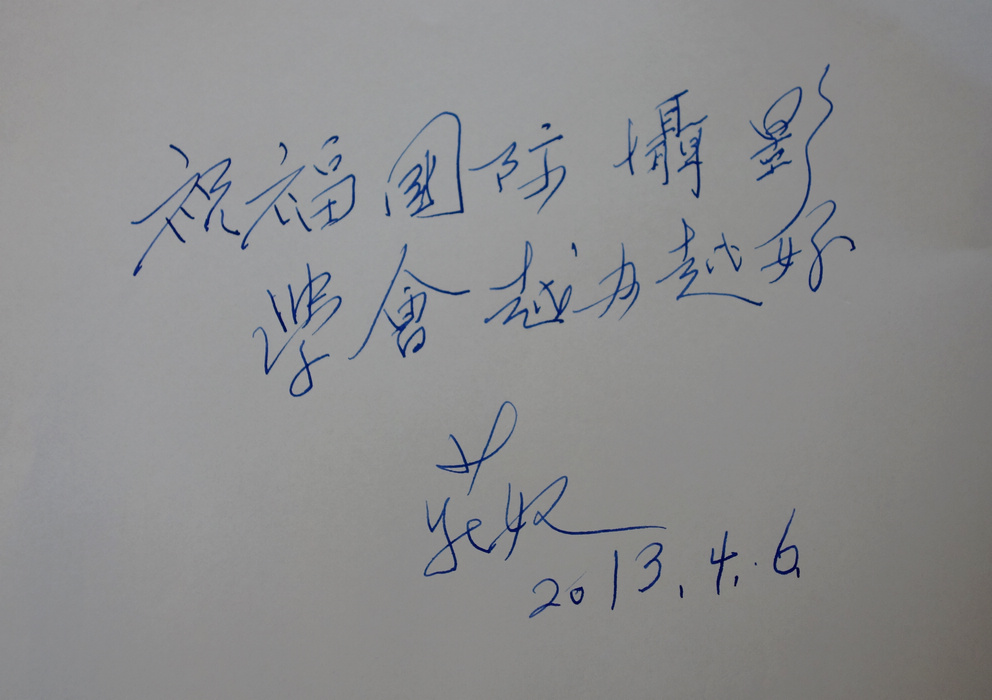 祝福國际攝影
學會越办越好
莊奴
2013.4.6